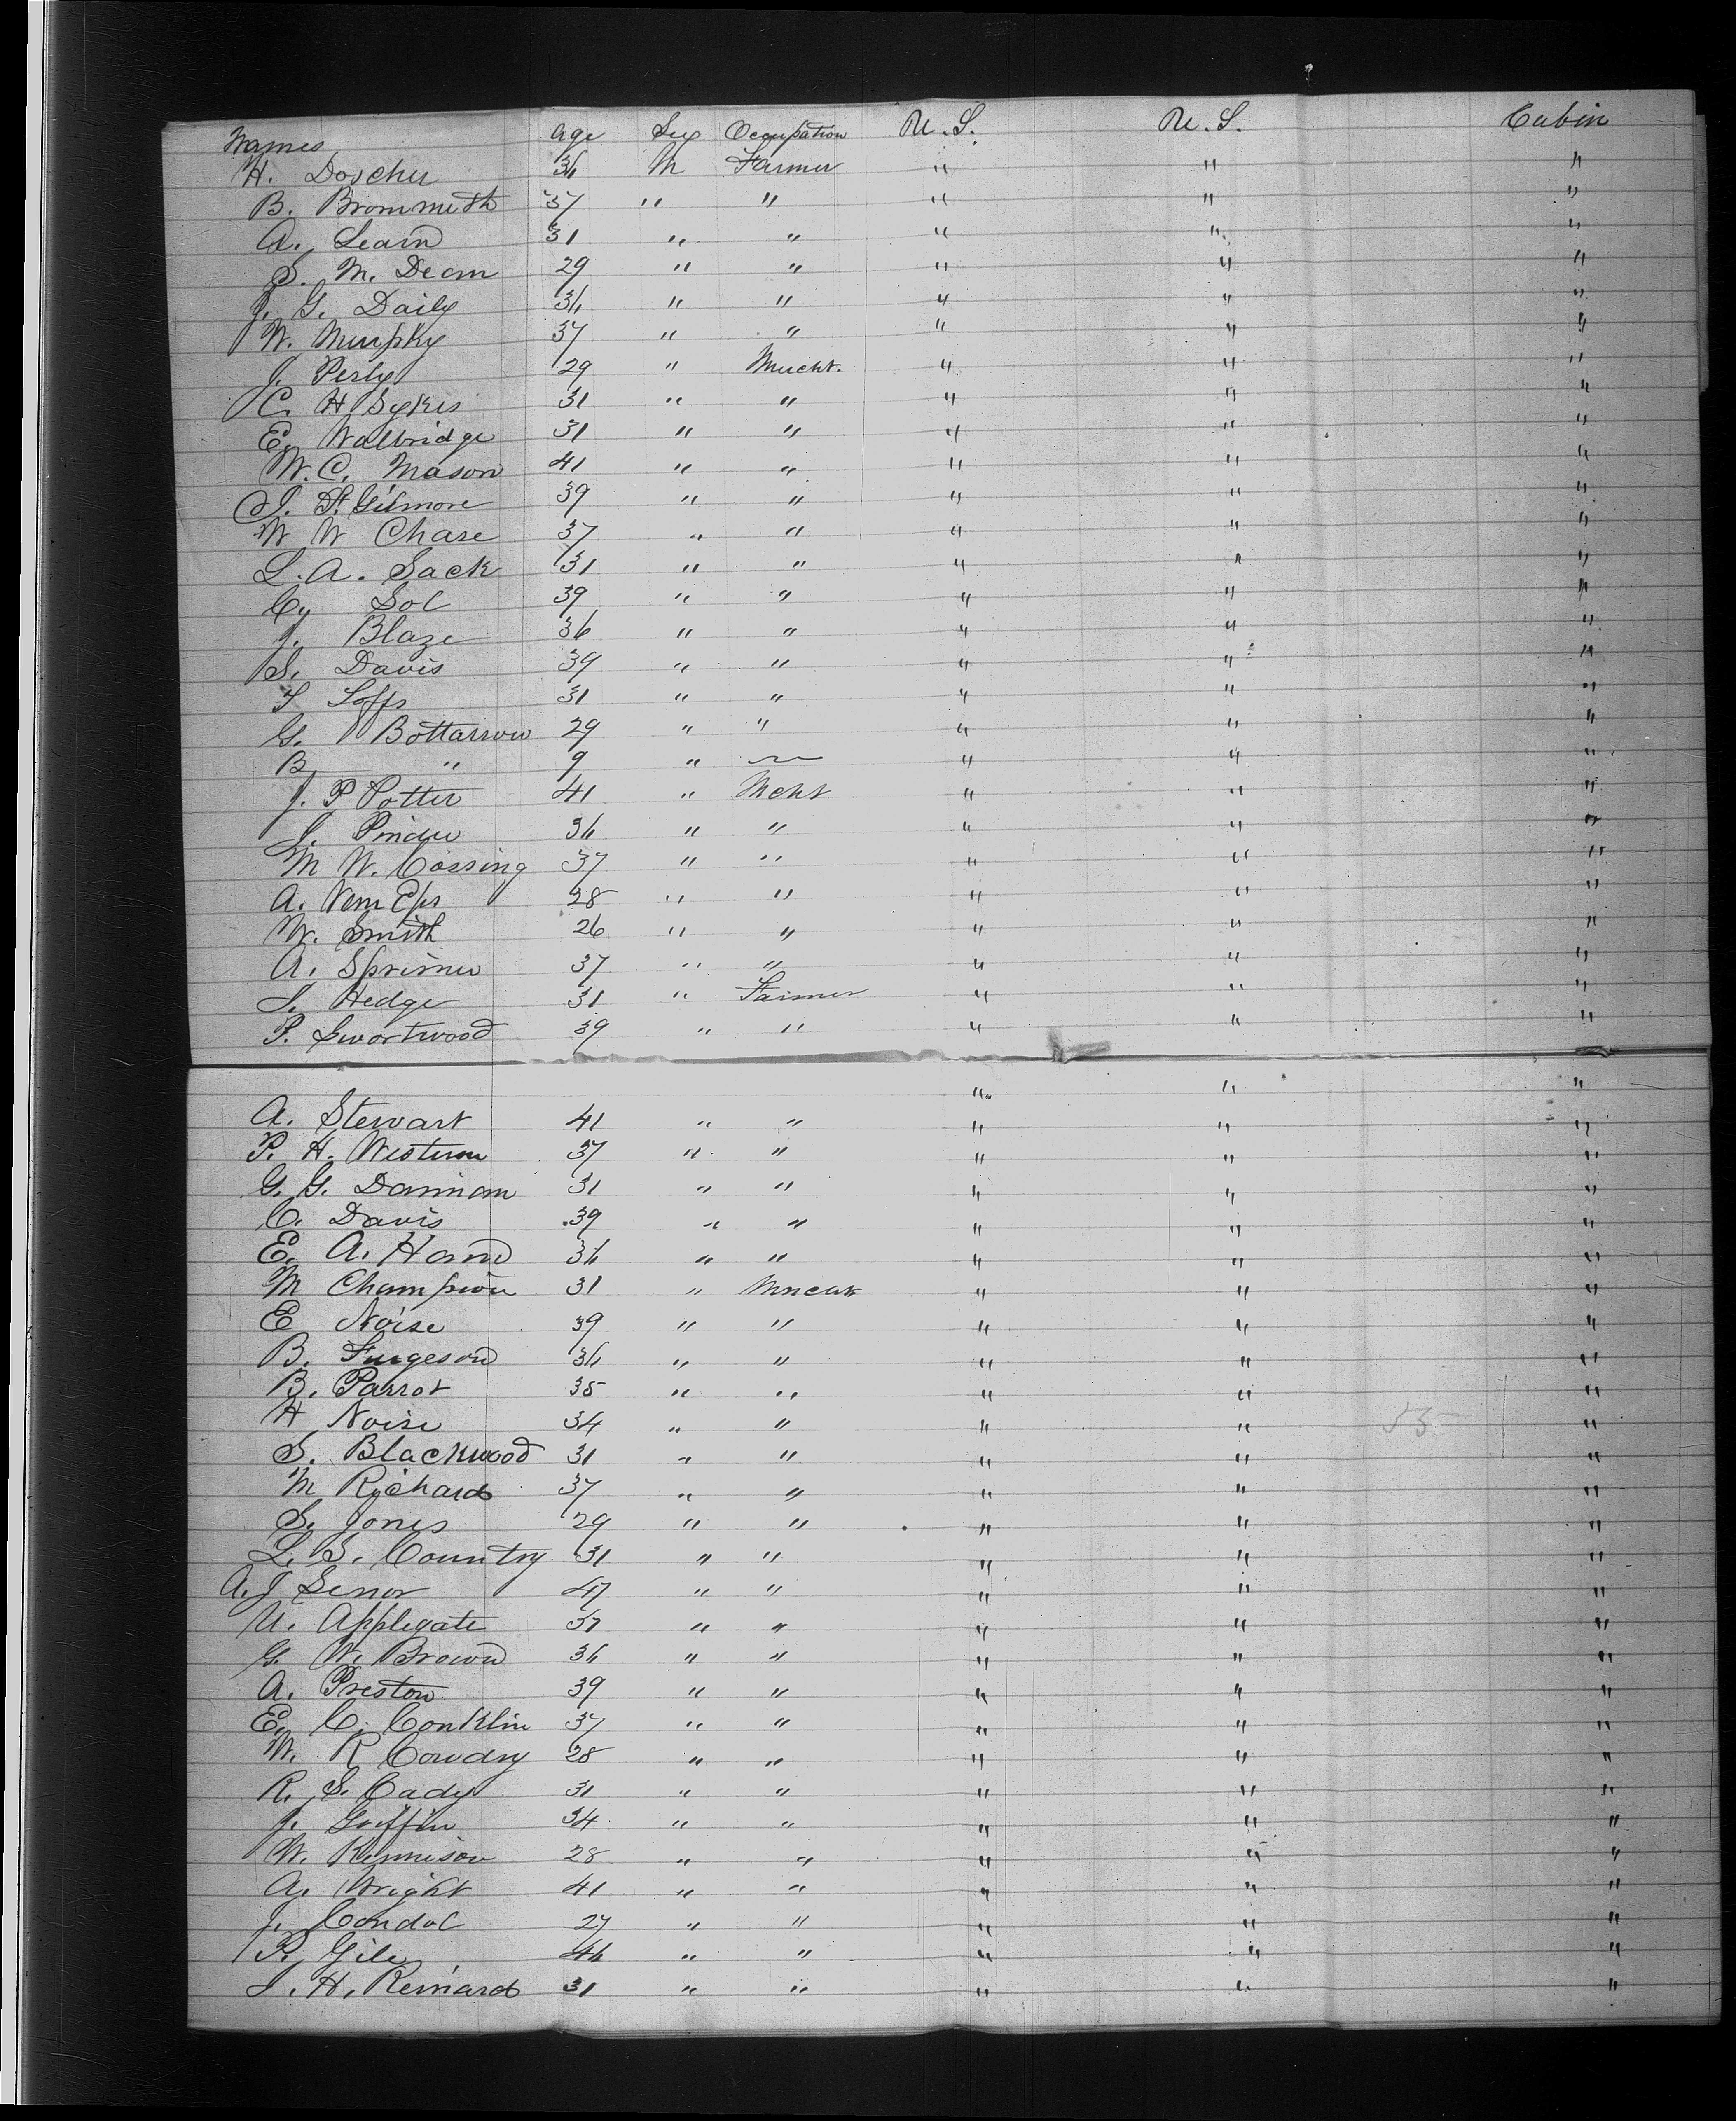 Names age Sex Occupation U. S. U. S. Cabin
H. 36 M Farmer " " "
B. 37 " " " " "
A. 31 " " " " "
S. M. Dean 29 " " " " "
J. G. Daily 36 " " " " "
W. Murphy 37 " " " " "
J. Perly 29 " Mercht. " " "
C. H Sykes 31 " " " " "
E. Walbridge 31 " " " " "
W. C. Mason 41 " " " " "
J. Gilmore 39 " " " " "
W W Chase 37 " " " " "
L. A. Sack 31 " " " " "
Cy Sol 39 " " " " "
J. Blaze 36 " " " " "
S. Davis 39 " " " " "
31 " " " " "
G. 29 " " " " "
B " 9 " ~ " " "
J. P Potter 41 " Mcht " " "
36 " " " " "
M W. Cossing 37 " " " " "
A. 28 " " " " "
W. Smith 26 " " " " "
A. 37 " " " " "
S. Hedge 31 " Farmer " " "
P. Swortwood 39 " " " " "
" " "
A. Stewart 41 " " " " "
P. H. Western 37 " " " " "
G. G. 31 " " " " "
C. Davis 39 " " " " "
E. A. Hand 36 " " " " "
M Champion 31 " " " "
E Noise 39 " " " " "
B. Furgeson 36 " " " " "
B. Parrot 35 " " " " "
H Noise 34 " " " " "
S. Blackwood 31 " " " " "
M Richards 37 " " " " "
S. Jones 29 " " " " "
L. S. Country 31 " " " " "
A. J Senor 47 " " " " "
U. Applegate 37 " " " " "
G. W. Brown 36 " " " " "
A. Preston 39 " " " " "
E. C. Conklin 37 " " " " "
W. R Cowdry 28 " " " " "
R. S. Cady 31 " " " " "
J. Griffin 34 " " " " "
W. Kennison 28 " " " " "
A. Wright 41 " " " " "
J. Condol 27 " " " " "
P. Gile 46 " " " " "
H. 31 " " " " "